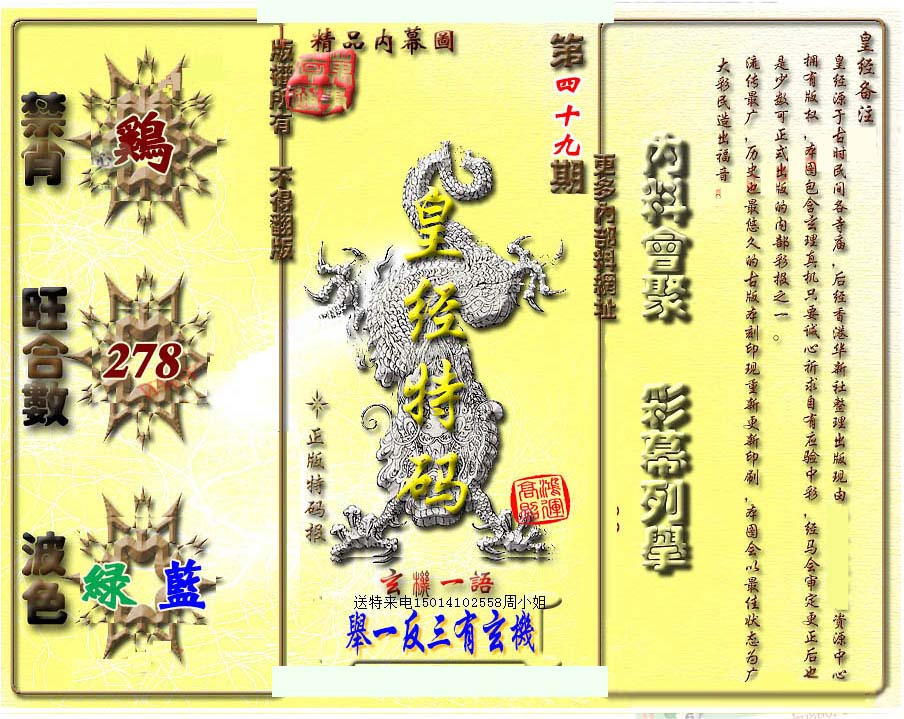 禁肖
鷄
旺合數
278
波色
緑 藍
版權所有 不得翻版
精品内幕圖
第四十九期
皇经特码
正版特码报
鴻運高照
玄機一語
送特来电15014102558周小姐
舉一反三有玄機
更多内部料網址
内料會聚 彩幕列舉
皇经备注
皇经源于古时民间各寺庙,后经香港华新社整理出版现由 资源中心
拥有版权,本图包含玄理真机只要诚心祈求自有应验中彩,经马会审定更正后也
是少数可正式出版的内部彩报之一。
流传最广,历史也最悠久的古版本刻印现重新更新印刷,本图会以最佳状态为广
大彩民造出福音